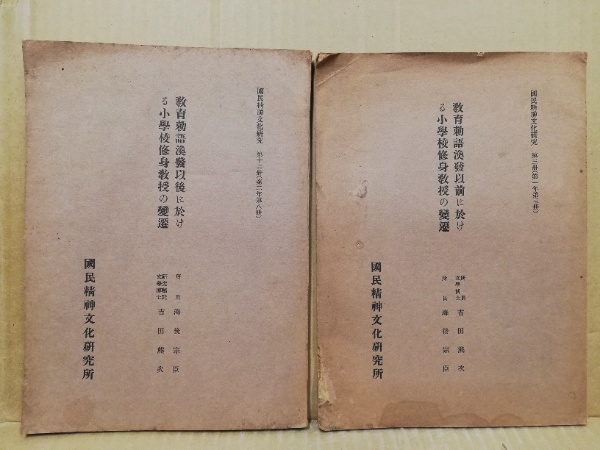 國民精神文化研究 第三册(第一年第三册)
教育勅語渙發以前に於け
る小學校修身教授の變遷
文學博士 吉田熊次
所員 海後宗臣
國民精神文化研究所
國民精神文化研究 第十二册(第二年第八册)
教育勅語渙發以後に於け
る小學校修身教授の變遷
所員 海後宗臣
文學博士 吉田熊次
國民精神文化研究所